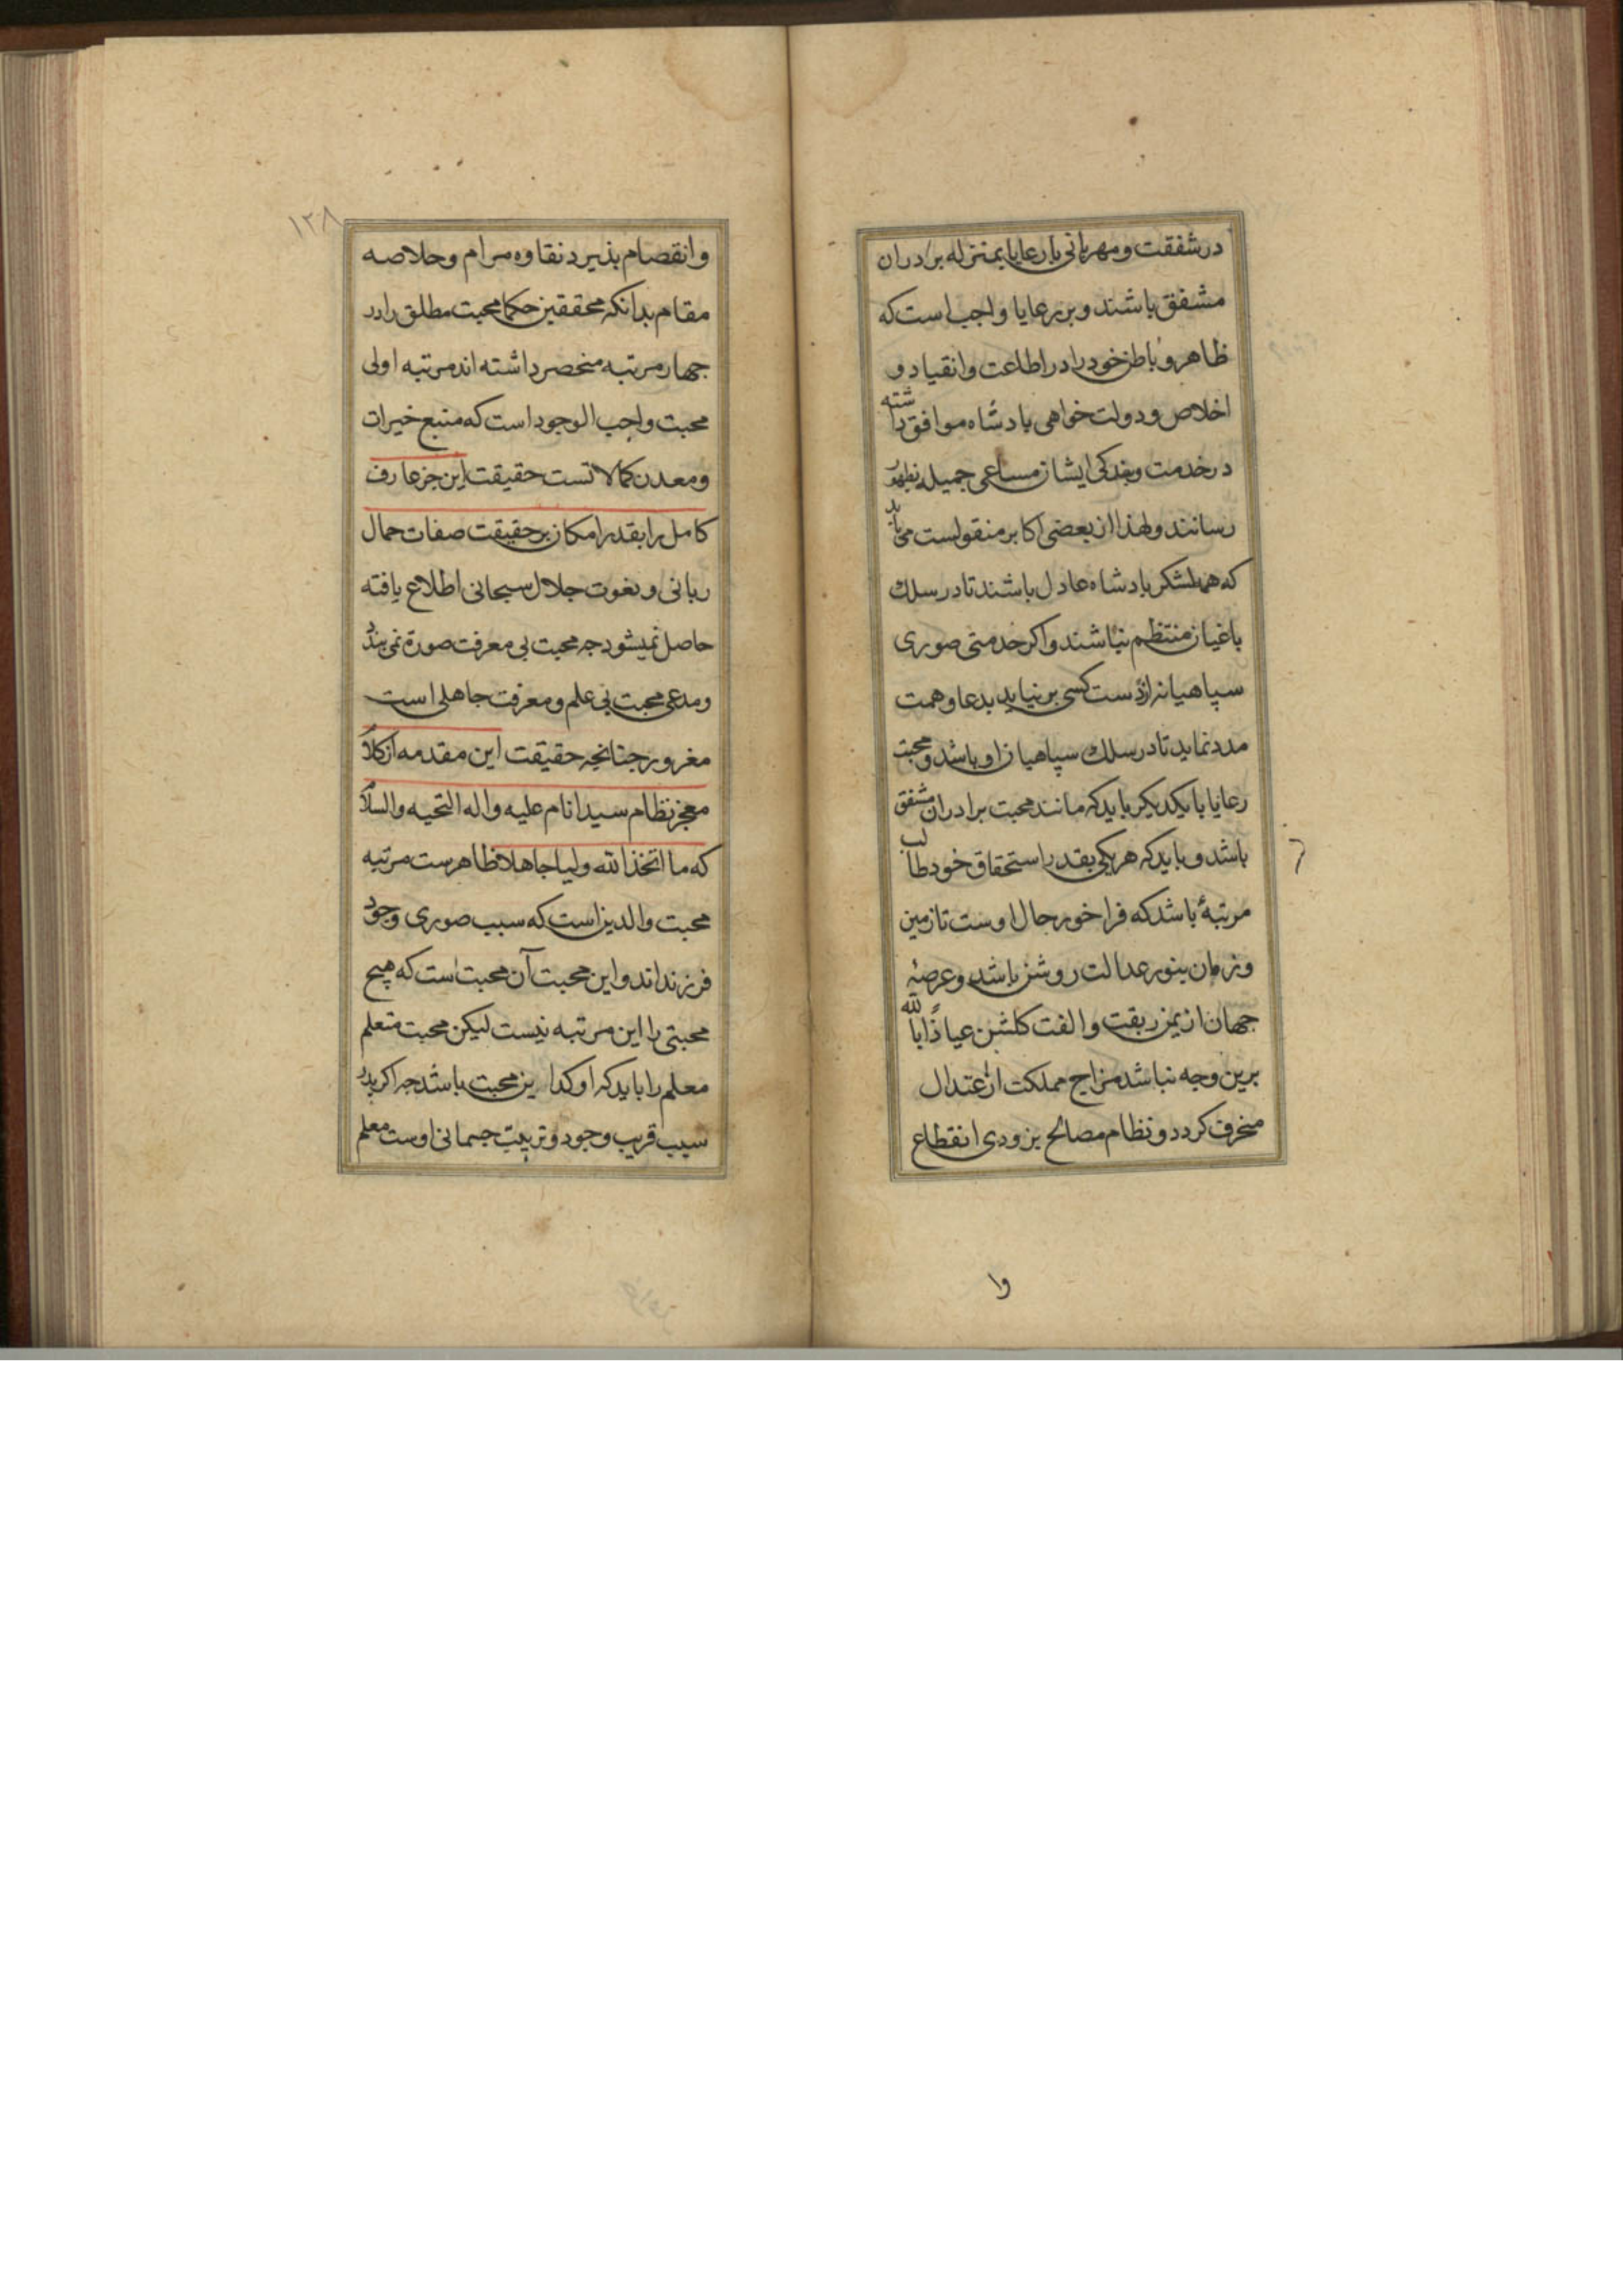 در شفقت و مهربانی با رعایا بمنزله برادران
مشفق باشند و بر رعایا واجب است که
ظاهر و باطن خود را در اطاعت و انقیاد و
اخلاص و دولت خواهی پادشاه موافق داشته
در خدمت و بندکی ایشان مساعی جمیله بظهور
رسانند و لهذا از بعضی اکابر منقولست می باید
که همه لشکر پادشاه عادل باشند تا در سلك
باغیان منتظم نباشند و اکر خدمتی صوری
سپاهیانه از دست کسی بر نیاید بدعا و همت
مدد نماید تا در سلك سپاهیان او باشد و محبت
رعایا با یکدیکر باید که مانند محبت برادران مشفق
باشد و باید که هر یکی بقدر استحقاق خود طالب
مرتبۀ باشد که فراخور حال اوست تا زمین
و زمان بنور عدالت روشن باشد و عرصۀ
جهان از یمن ربقت و الفت کلشن عیاذًا بالله
برین وجه نباشد مزاج مملکت از اعتدال
منحرف کردد و نظام مصالح بزودی انقطاع
وا
۱۲۸
و انقصام پذیرد نقاوه مرام و خلاصه
مقام بدانکه محققین حکما محبت مطلق را در
چهار مرتبه منحصر داشته اند مرتبه اولی
محبت واجب الوجود است که منبع خیرات
و معدن کمالاتست حقیقت این جز عارف
کامل را بقدر امکان بر حقیقت صفات جمال
ربانی و نعوت جلال سبحانی اطلاع یافته
حاصل نمیشود چه محبت بی معرفت صورة نمی بندد
و مدعی محبت بی علم و معرفت جاهلی است
مغرور چنانچه حقیقت این مقدمه از کلام
معجز نظام سید انام علیه و اله التحیه والسلام
که ما اتخذ الله ولیا جاهلا ظاهرست مرتبه
محبت والدین است که سبب صوری وجود
فرزند اند و این محبت آن محبت است که هیچ
محبتی را این مرتبه نیست لیکن محبت متعلم
معلم را باید که اوکد از این محبت باشد چه اکر پدر
سبب قریب وجود و تربیت جسمانی اوست معلم